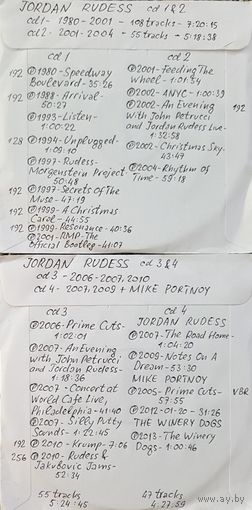 JORDAN RUDESS cd 1&2
cd1 - 1980-2001 - 108tracks - 7:20:15
cd2 - 2001-2004 - 55 tracks - 5:18:38
cd 1
192 ℗1980-Speedway
Boulevard-35:26
192 ℗1988-Arrival-
50:27
℗1993-Listen-
1:00:22
128 ℗1994-Unplugged-
1:09:10
℗1997-Rudess-
Morgenstein Project
50:48
192 ℗1997-Secrets Of The
Muse-47:19
192 ℗1999-A Christmas
Carol-44:55
192 ℗1999-Resonance-40:36
℗2001-AMP-The
Official Bootleg-41:07
cd 2
℗2001-Feeding The
Wheel-1:01:34
℗2002-4NYC-1:00:39
℗2002-An Evening 192
With John Petrucci
and Jordan Rudess Live-
1:32:58
℗2002-Christmas Sky-
43:47
℗2004-Rhythm of
Time-59:18
JORDAN RUDESS cd 3&4
cd3 - 2006-2007, 2010
cd4 - 2007, 2009 + MIKE PORTNOY
cd3
℗2006-Prime Cuts-
1:02:01
℗2007-An Evening
with John Petrucci
and Jordan Rudess-
1:18:36
℗2007-Concert at
World Cafe Live,
Philadelphia-41:40
℗2007-Silly Putty
Sounds-1:22:45
192 ℗2010-Krump-7:06
256 ℗2010-Rudess &
Jakubovic Jams-
52:34
55 tracks
5:24:45
cd 4
JORDAN RUDESS
℗2007-The Road Home-
1:04:20
℗2009-Notes On A
Dream-53:30
MIKE PORTNOY
℗2005-Prime Cuts- VBR
57:55
℗2012-01-20-31:26
THE WINERY DOGS
℗2013-The Winery
Dogs-1:00:46
47 tracks
4:27:59
www.ay.by